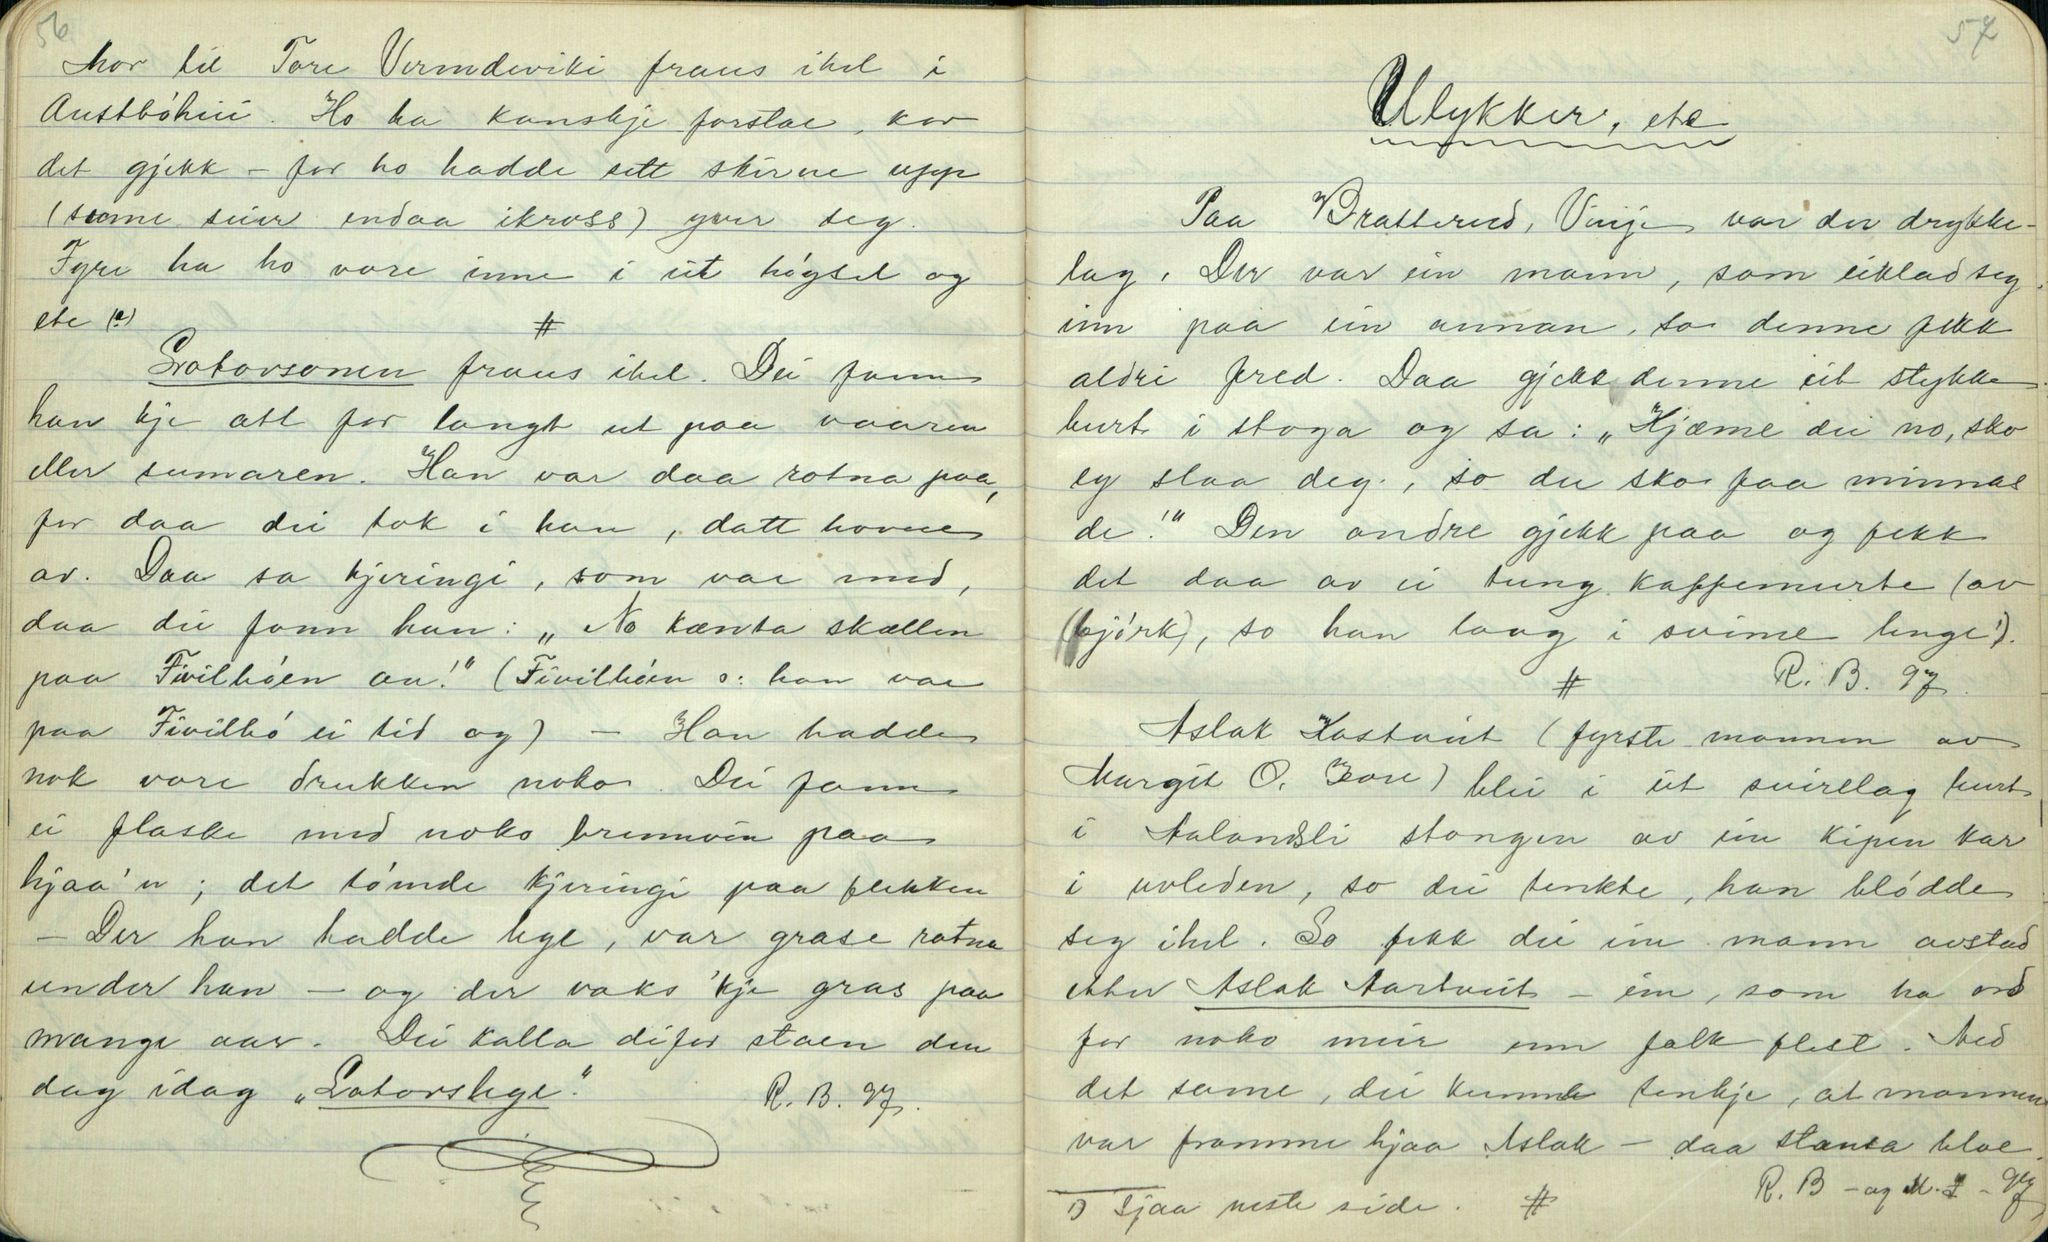 56
Mor til Tore Vermdeviki fraus ihel i
Austbøhei. Ho ha kanskje forstae, kor
det gjekk – for ho hadde sett skiene upp
(sume seier endaa ikross) yver seg.
Fyre ha ho vore inne i eit høgsel og
ete (?)
#
Sratorsonen fraus ihel. Dei fann
han kje att før langt ut paa vaaren
eller sumaren. Han var daa rotna paa,
for daa dei tok i han, datt hovue
av. Daa sa kjeringi, som var med,
daa dei fann han: „No kænta skallen
paa Fivilbøen au!“ (Fivilbøen ɔ: han var
paa Fivilbø ei tid og) – Han hadde
nok vore drukken noko. Dei fann
ei flaske med noko brennvin paa
hjaa'n; det tømde kjeringi paa flekken
– Der han hadde lege, var grase rotna
under han – og der voks 'kje gras paa
mange aar. Dei kalla difor staen den
dag idag „Latorslege“.
R. B. 97.
57
Ulykker, etc
Paa Bratterud, Vinje var der drykkje-
lag. Der var ein mann, som eiklad seg
inn paa ein annan, so denne fekk
aldri fred. Daa gjekk denne eit stykke
burt i stoga og sa: „Kjæme du no, sko
eg slaa deg, so du sko faa minnas
de!“ Den andre gjekk paa og fekk
det daa av ei tung kaffemurte (av
(bjørk), so han laag i svime lenge¹).
# R. B. 97.
Aslak Kostveit (fyrste mannen av
Margit O. Bore) blei i eit svirelag burt
i Aalandsli stongen av ein kipen kar
i uvleden, so dei tenkte, han blødde
seg ihel. So fekk dei ein mann avstad
etter Aslak Aartveit – ein, som ha ord
for noko meir enn folk flest. Med
det same, dei kunne tenkje, at mannen
var framme hjaa Aslak – daa stansa bloe.
R. B – og M. I – 97
1) Sjaa neste side. #